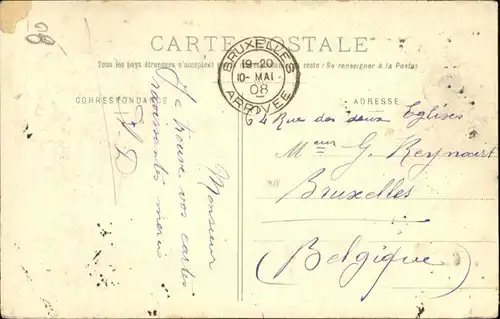 80
CARTE POSTALE
Tous les pays étrangers n'acceptent pas la correspondance au recto : (Se renseigner à la Poste)
CORRESPONDANCE
ADRESSE
BRUXELLES
19-20
10- MAI -
08
ARRIVÉE
Monsieur
Je trouve vos cartes
ravissantes mais
64 Rue des deux Eglises
Meur G. Reynaert
Bruxelles
(Belgique)